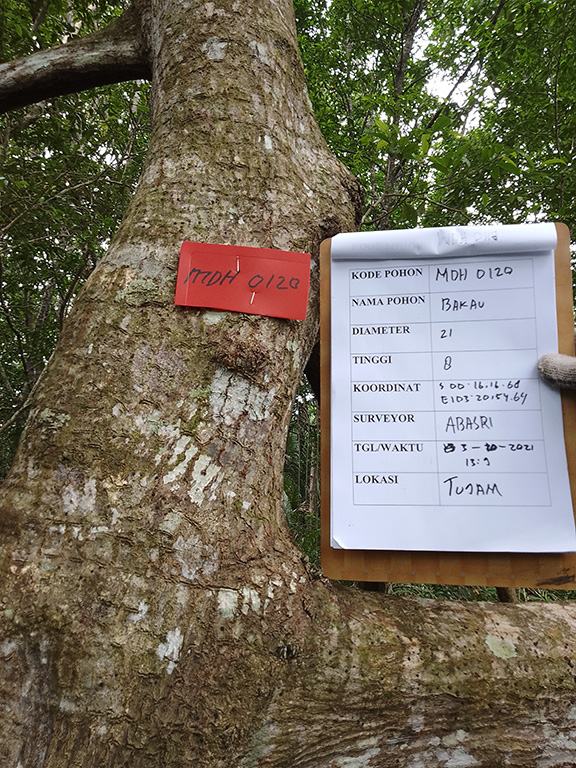 MDH 0120
KODE POHON MDH 0120
NAMA POHON BAKAU
DIAMETER 21
TINGGI 8
KOORDINAT S 00.16.16.60
E103.20.54.69
SURVEYOR ABASRI
TGL/WAKTU 3-10-2021
LOKASI TUJAM